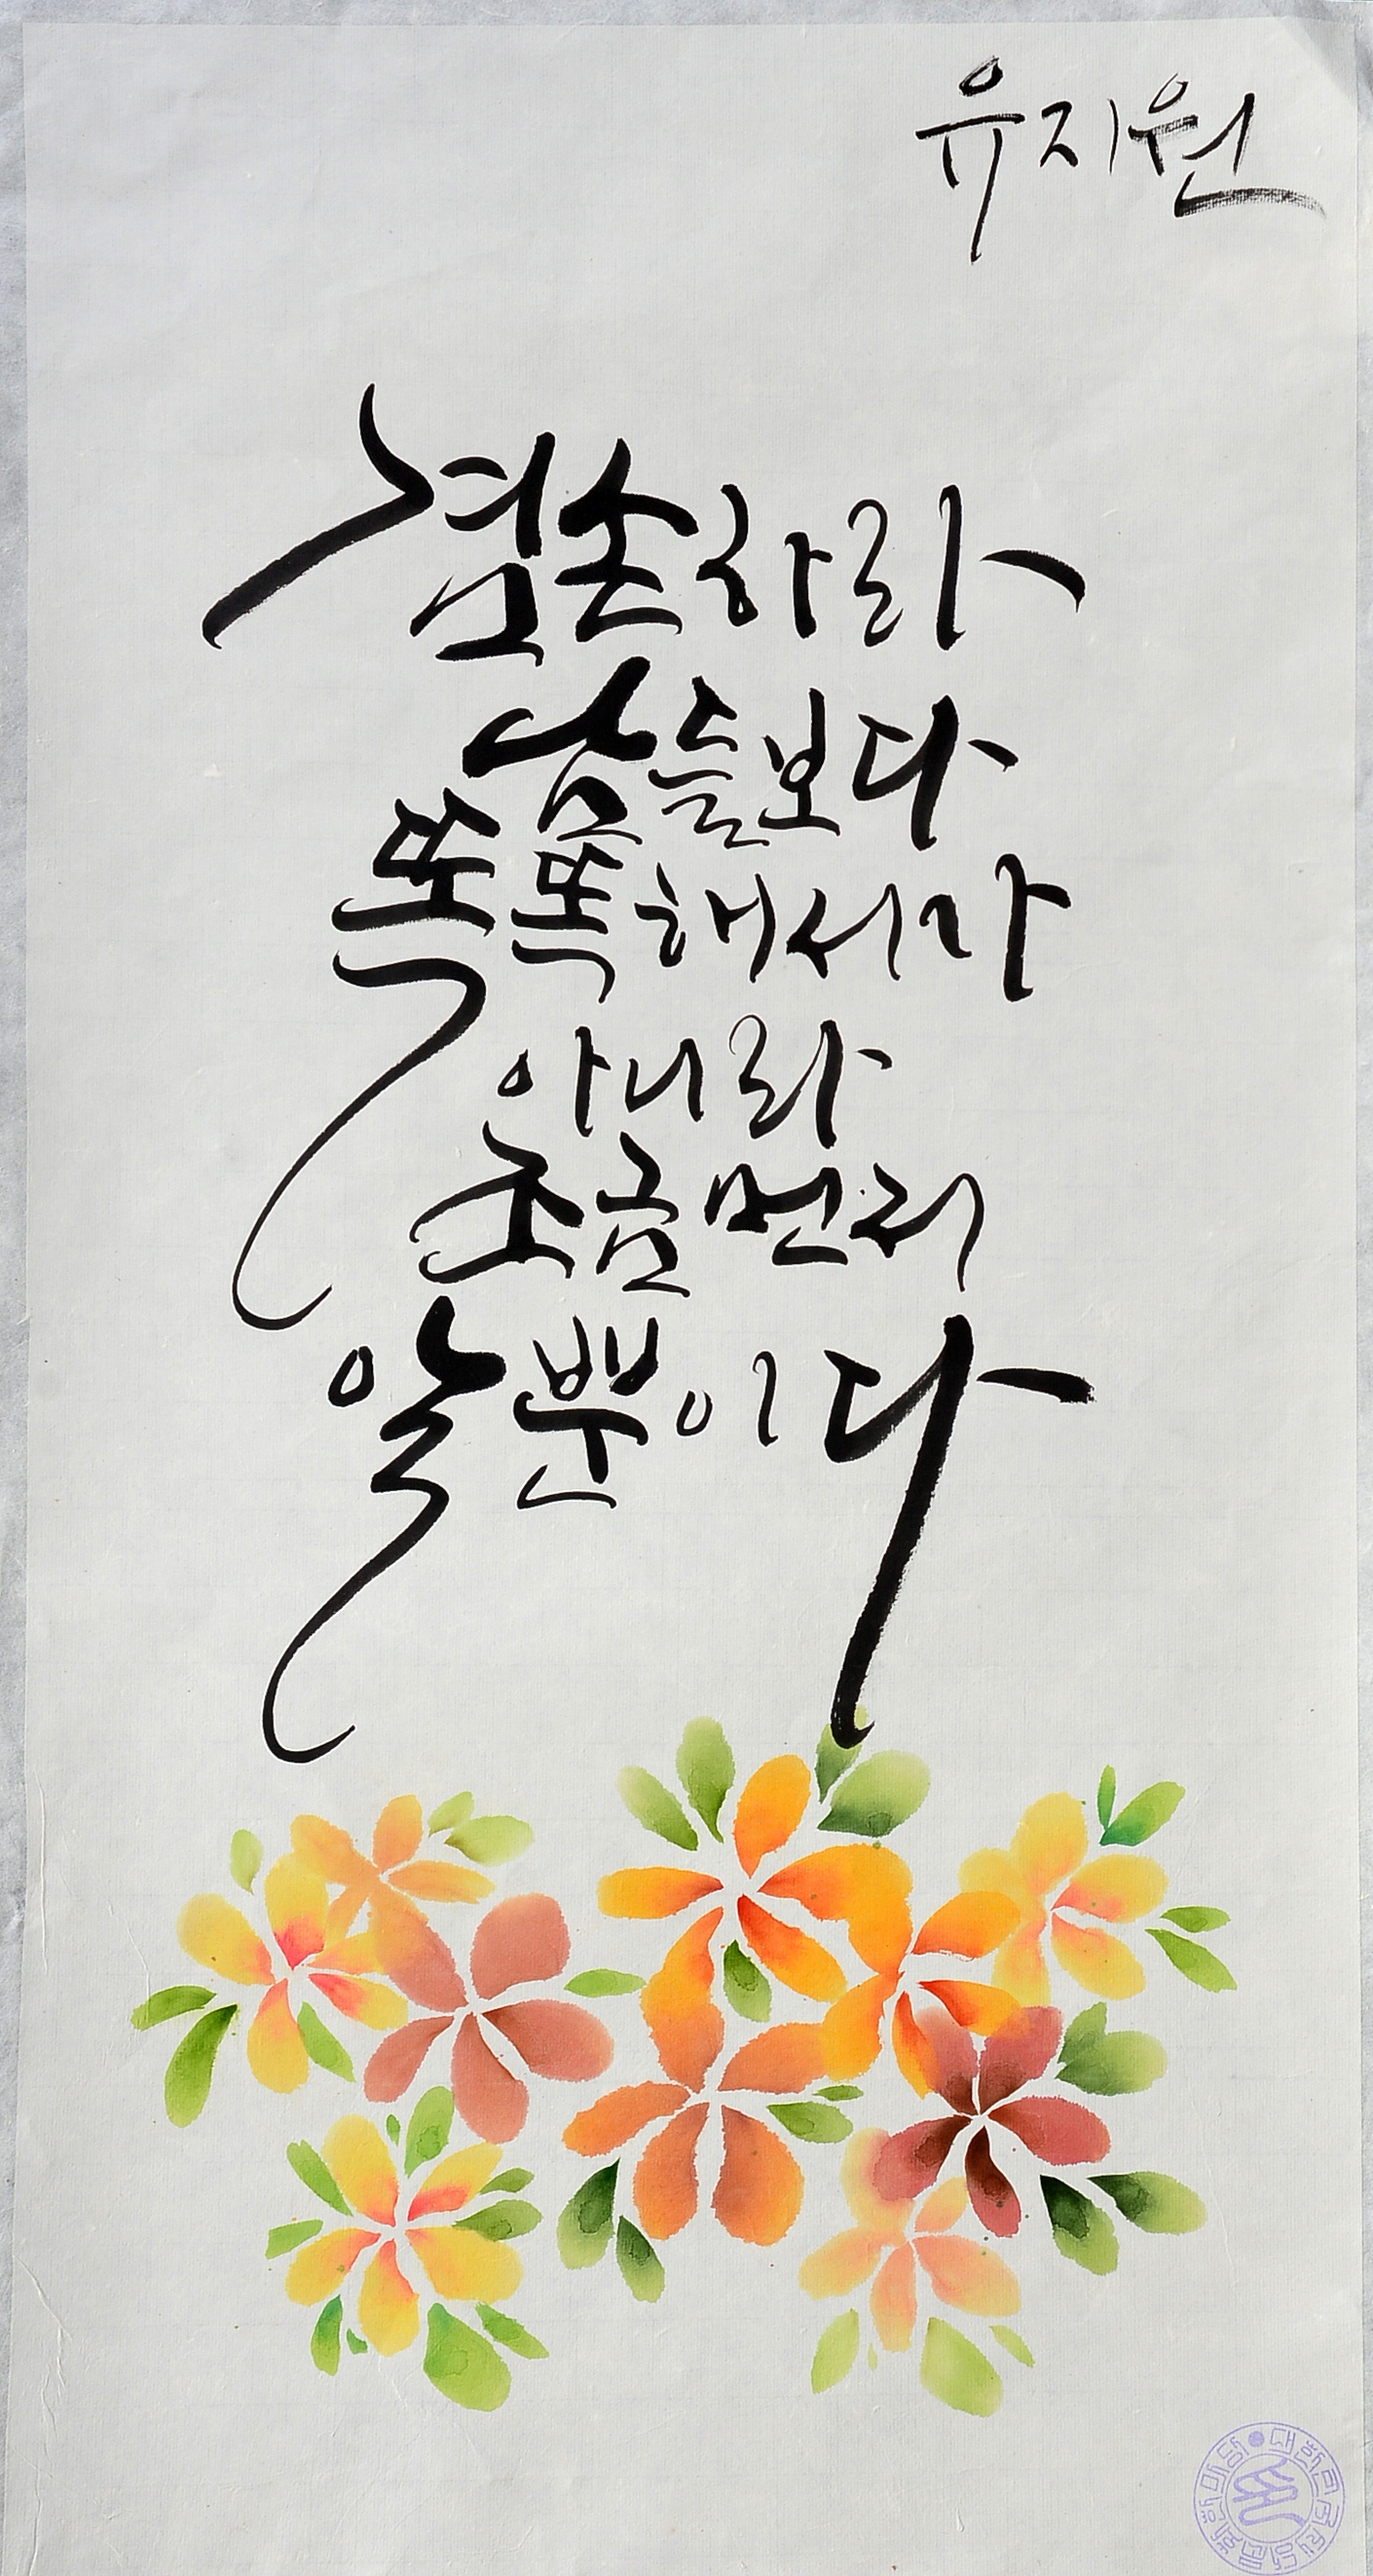 유지원
겸손하라
남들보다
똑똑해서가
아니라
조금먼저
알뿐이다